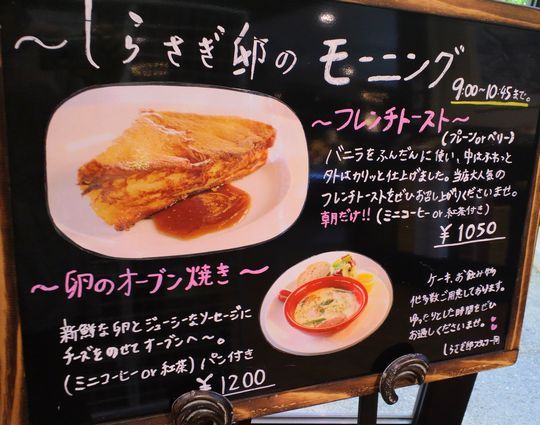 ～しらさぎ邸のモーニング
9:00～10:45まで。
～フレンチトースト～
(プレーンorベリー)
バニラをふんだんに使い、中はふわっと
外はカリッと仕上げました。当店大人気の
フレンチトーストをぜひお召し上がりくださいませ。
朝だけ!!(ミニコーヒーor紅茶付き)
¥1050
～卵のオーブン焼き～
新鮮な卵とジューシーなソーセージに
チーズをのせてオーブンへ～。
(ミニコーヒーor紅茶)パン付き
¥1200
ケーキ、お飲み物
他多数ご用意しております。
ゆったりとした時間をぜひ
お過しくださいませ。
しらさぎ邸